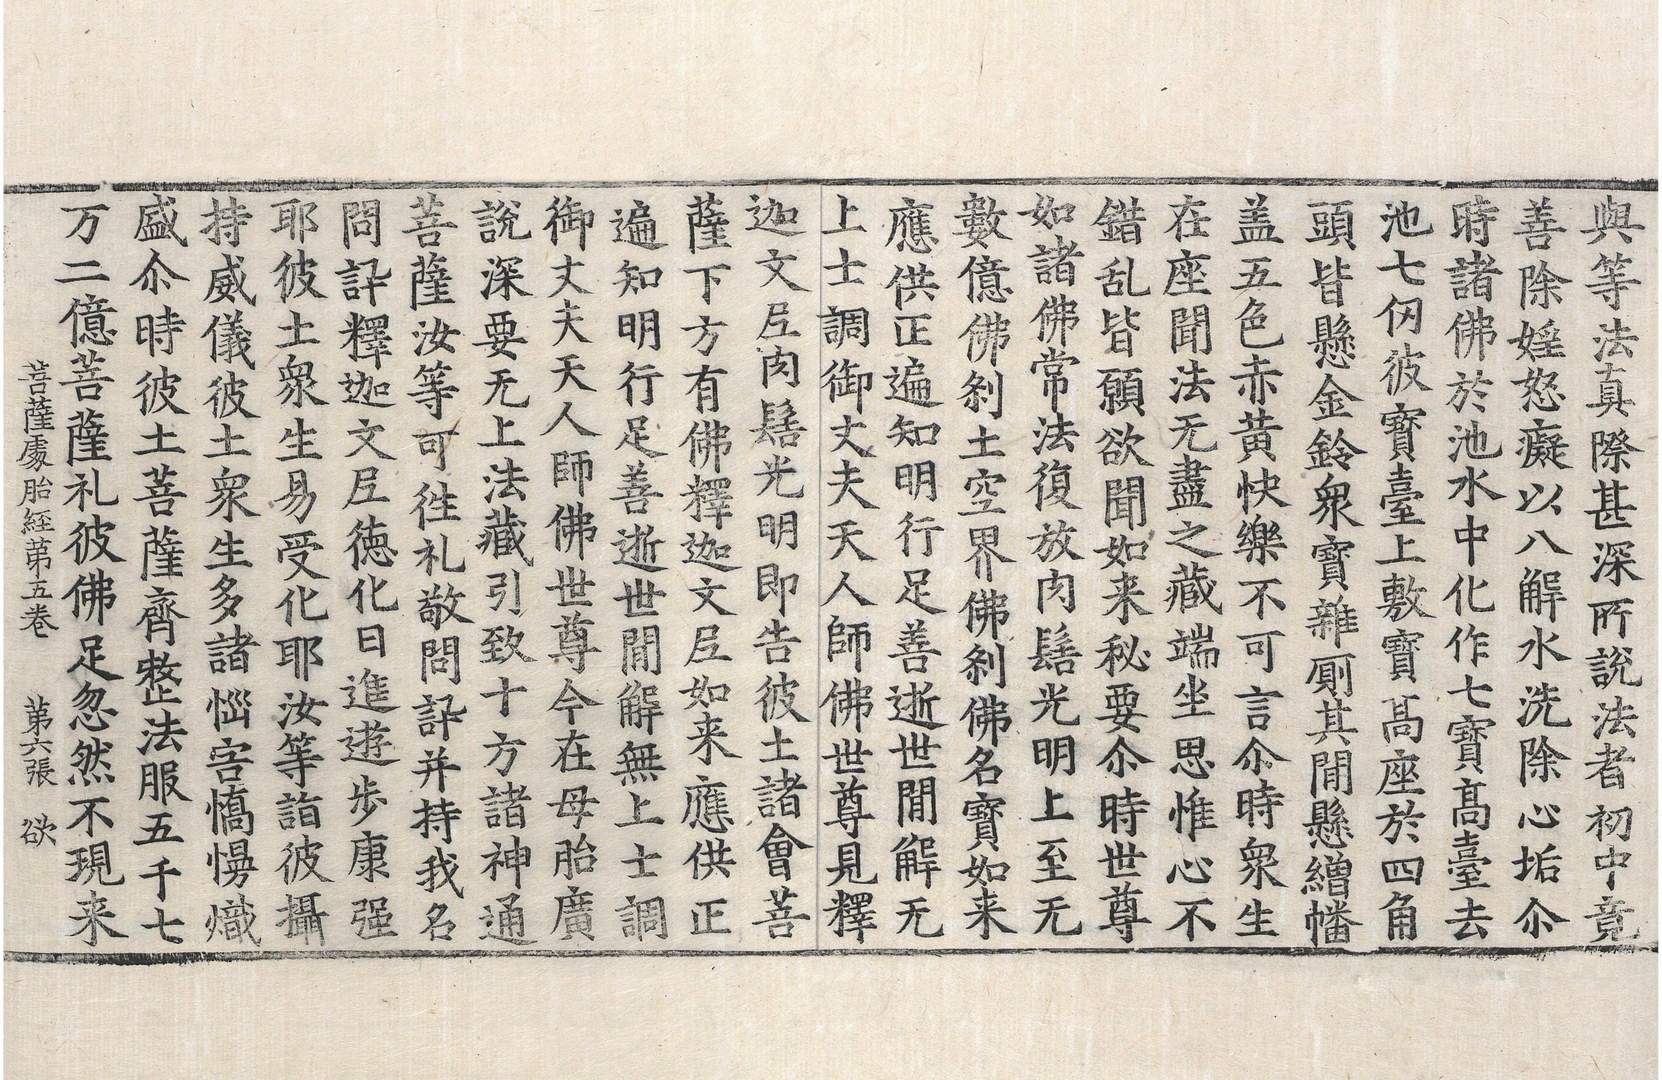 與等法真際甚深所說法者初中竟
善除婬怒癡以八解水洗除心垢尒
時諸佛於池水中化作七寶高臺去
池七仞彼寶臺上敷寶高座於四角
頭皆懸金鈴衆寶雜廁其閒懸繒幡
盖五色赤黃快樂不可言尒時衆生
在座聞法无盡之藏端坐思惟心不
錯乱皆願欲聞如来秘要尒時世尊
如諸佛常法復放肉髻光明上至无
數億佛刹土空界佛刹佛名寶如来
應供正遍知明行足善逝世閒解无
上士調御丈夫天人師佛世尊見釋
迦文尼肉髻光明即告彼土諸會菩
薩下方有佛釋迦文尼如来應供正
遍知明行足善逝世閒解無上士調
御丈夫天人師佛世尊今在母胎廣
說深要无上法藏引致十方諸神通
菩薩汝等可徃礼敬問訊并持我名
問訊釋迦文尼德化日進遊步康强
耶彼土衆生易受化耶汝等詣彼攝
持威儀彼土衆生多諸㛴害憍慢熾
盛尒時彼土菩薩齊整法服五千七
万二億菩薩礼彼佛足忽然不現来
菩薩處胎經第五卷 第六張 欲